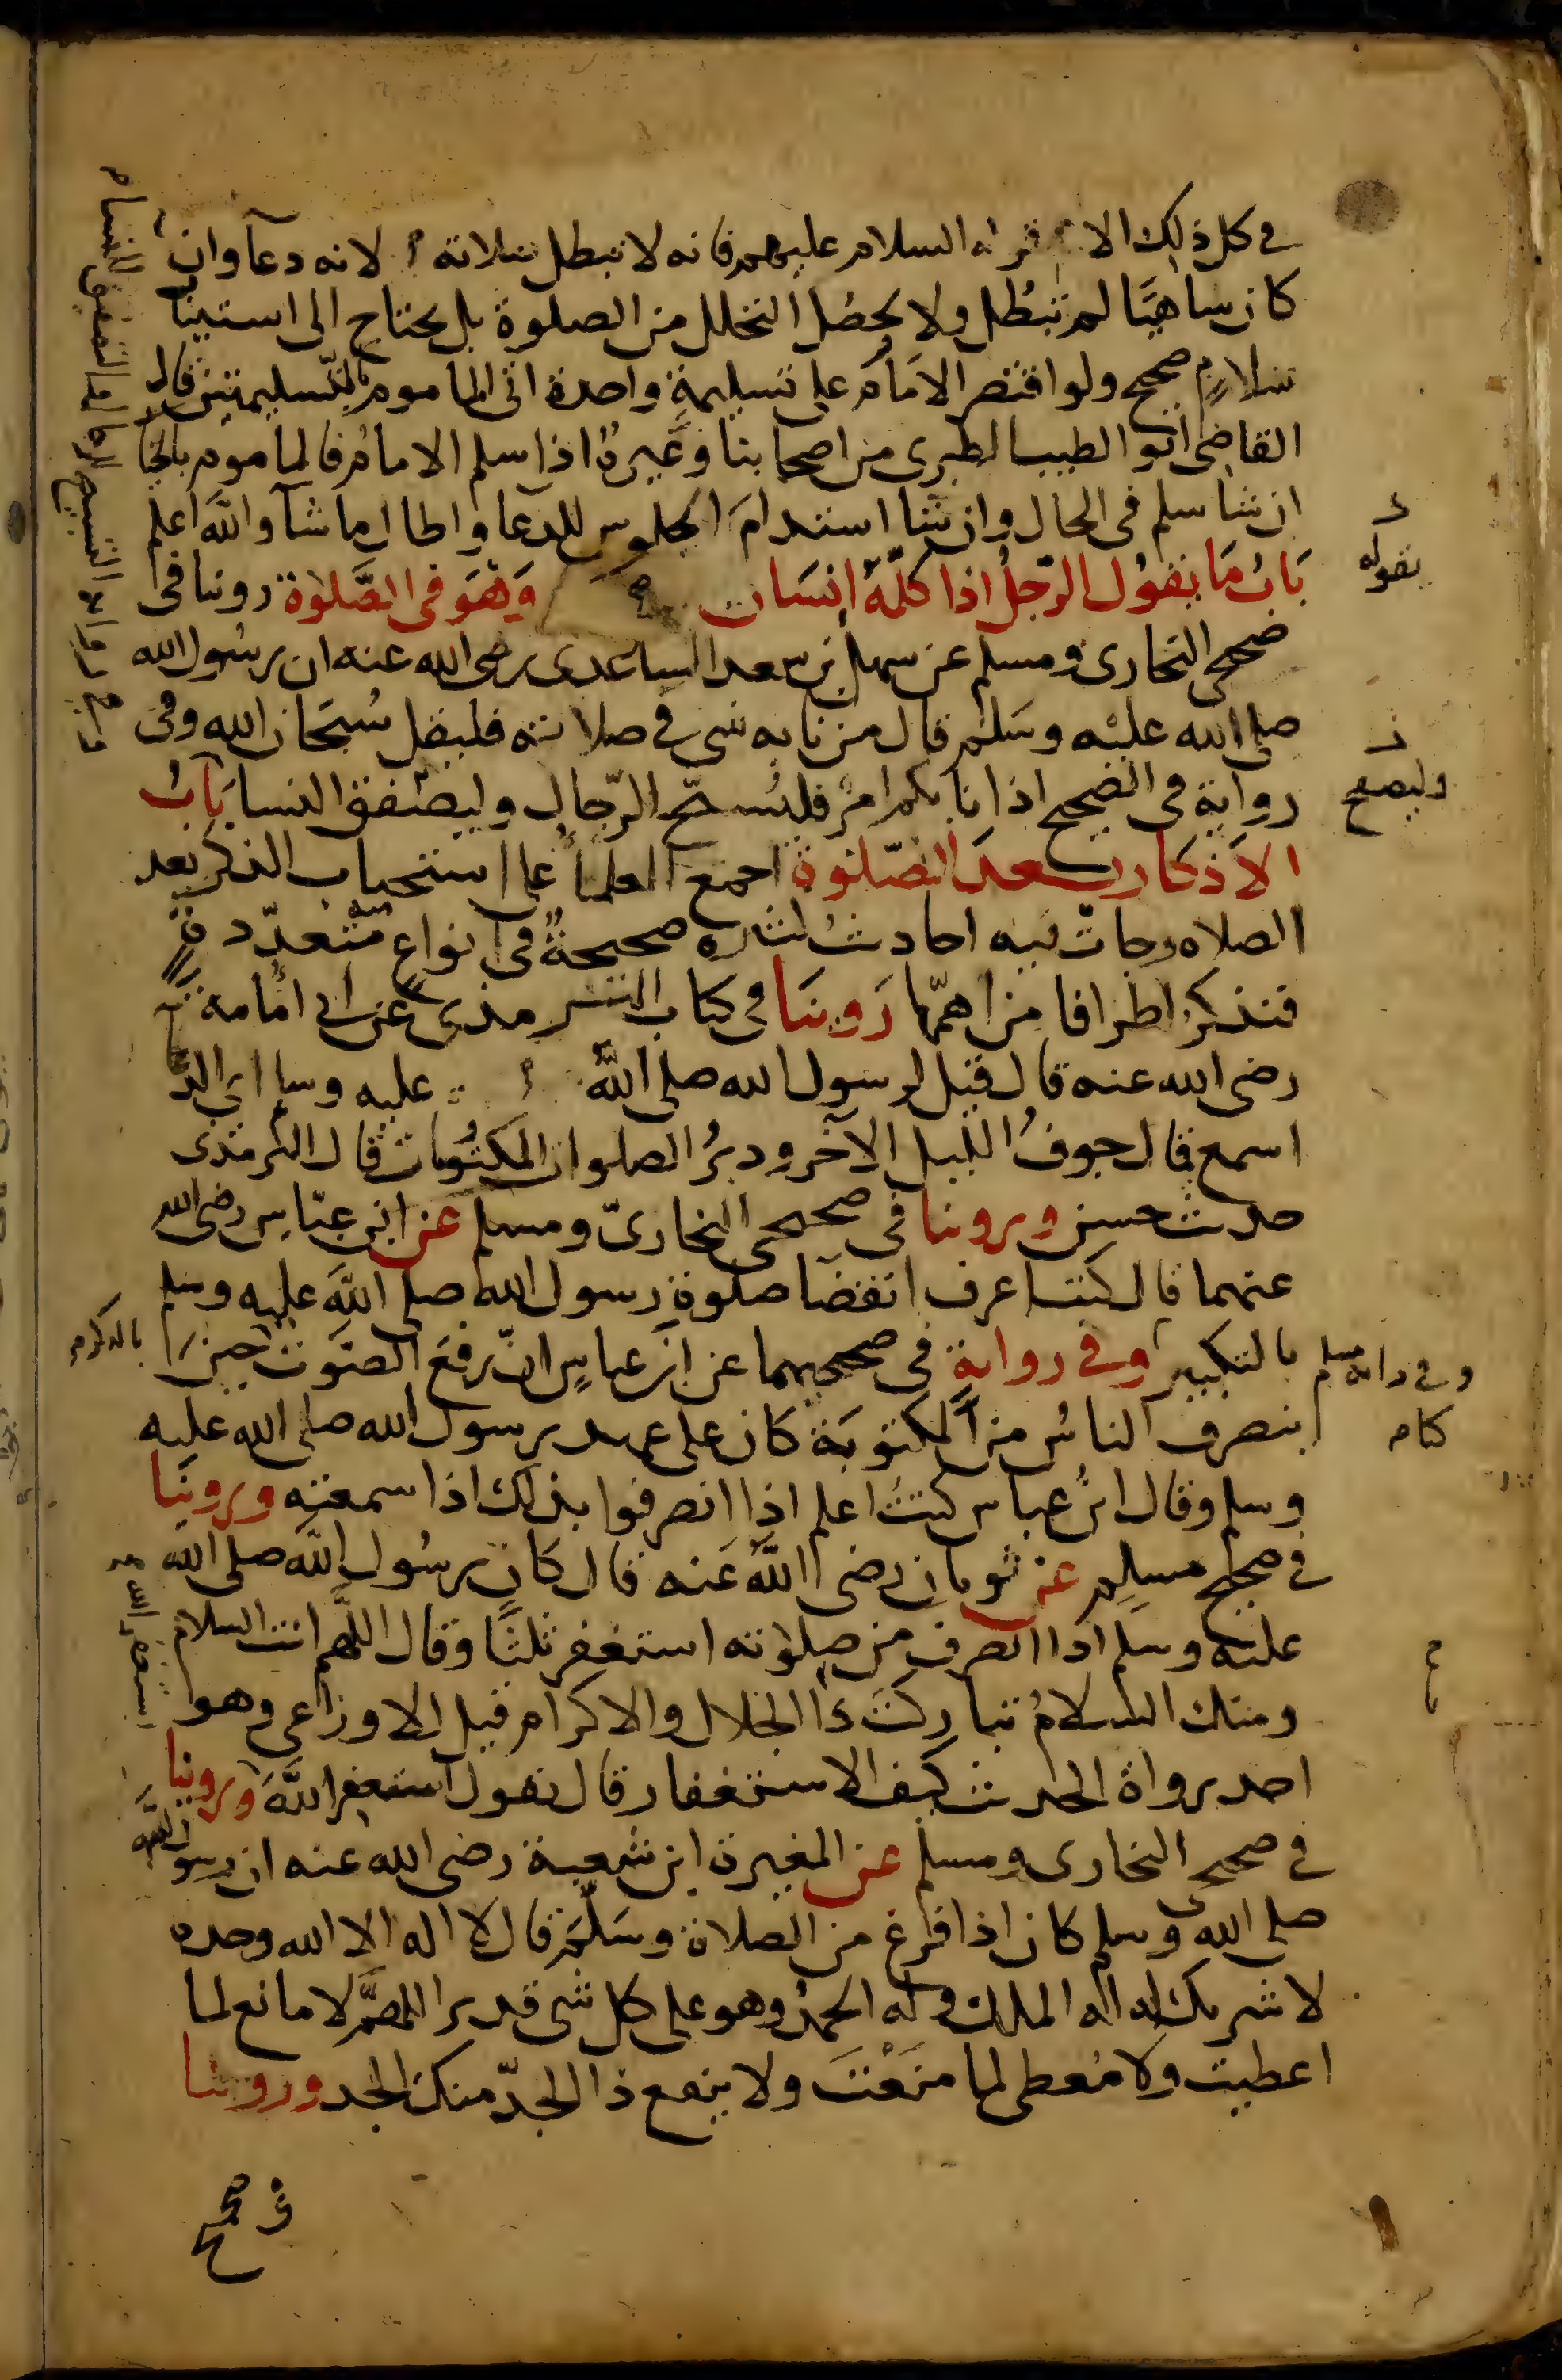 في كل ذلك الا السلام عليهم فانه لا تبطل صلاته لانه دعآ وان
كان ساهيًا لم تبطل ولا يحصل التحلل من الصلوة بل يحتاج الى استيناف
سلام صحيح ولو اقتصر الامام على تسليمة واحدة اتى الماموم بالتسليمتين قال
القاضي ابو الطيب الطبري من اصحابنا وغيره اذا سلم الامام فالماموم بالخيا
ان شا سلم في الحال وان شا استدام الجلوس للدعا واطال ما شآ والله اعلم
باب ما يقول الرجل اذا كلمه انسان وهو في الصلوة روينا في
صحيحي البخاري ومسلم عن سهل بن سعد الساعدي رضي الله عنه ان رسول الله
صلى الله عليه وسلم قال من نابه شي في صلاته فليقل سبحان الله وفي
رواية في الصحيح اذا نابكم امر فليسبح الرجال وليصفق النسا باب
الاذكار بعد الصلوة اجمع العلما على استحباب الذكر بعد
الصلاه وجات فيه احاديث كثيره صحيحة في انواع متعددة
فنذكر اطرافا من اهمها روينا في كتاب الترمذي عن ابي امامة
رضي الله عنه قال قيل لرسول الله صلى الله عليه وسلم اي الدعا
اسمع قال جوف الليل الآخر ودبر الصلوات المكتوبات قال الترمذي
حديث حسن وروينا في صحيحي البخاري ومسلم عن ابن عباس رضي الله
عنهما قال كنت اعرف انقضا صلوة رسول الله صلى الله عليه وسلم
بالتكبير وفي رواية في صحيحيهما عن ابن عباس ان رفع الصوت حين
ينصرف الناس من المكتوبة كان على عهد رسول الله صلى الله عليه
وسلم وقال ابن عباس كنت اعلم اذا انصرفوا بذلك اذا سمعته وروينا
في صحيح مسلم عن ثوبان رضي الله عنه قال كان رسول الله صلى الله
عليه وسلم اذا انصرف من صلوته استغفر ثلثا وقال اللهم انت السلام
ومنك السلام تباركت ذا الجلال والاكرام قيل الاوزاعي وهو
احد رواة الحديث كيف الاستغفار قال تقول استغفر الله وروينا
في صحيحي البخاري ومسلم عن المغيرة ابن شعبة رضي الله عنه ان رسول الله
صلى الله وسلم كان اذا فرغ من الصلاة وسلم قال لا اله الا الله وحده
لا شريك له له الملك وله الحمد وهو على كل شي قدير اللهم لا مانع لما
اعطيت ولا معطي لما منعت ولا ينفع ذا الجد منك الجد وروينا
في صحيح
يقوله
وليصفح
بالذكر
وفي رواية مسلم
كنا
استغفر الله